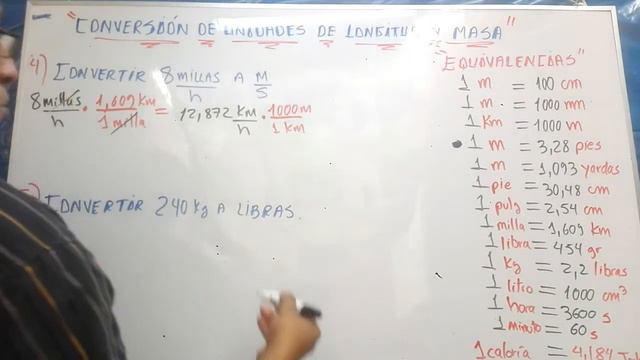 "CONVERSIÓN DE UNIDADES DE LONGITUD Y MASA"
4) CONVERTIR 8 millas A M/S
h
8 millas/h · 1,609 Km/1 milla = 12,872 Km/h · 1000 M/1 Km
CONVERTIR 240 Kg A LIBRAS.
"EQUIVALENCIAS"
1 m = 100 cm
1 m = 1000 mm
1 Km = 1000 m
1 m = 3,28 pies
1 m = 1,093 yardas
1 pie = 30,48 cm
1 pulg = 2,54 cm
1 milla = 1,609 Km
1 libra = 454 gr
1 Kg = 2,2 libras
1 litro = 1000 cm³
1 hora = 3600 s
1 minuto = 60 s
1 caloría = 4,184